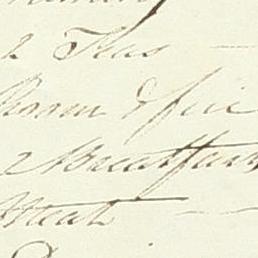 2 Teas
Room & fire
2 Breakfasts
Meat